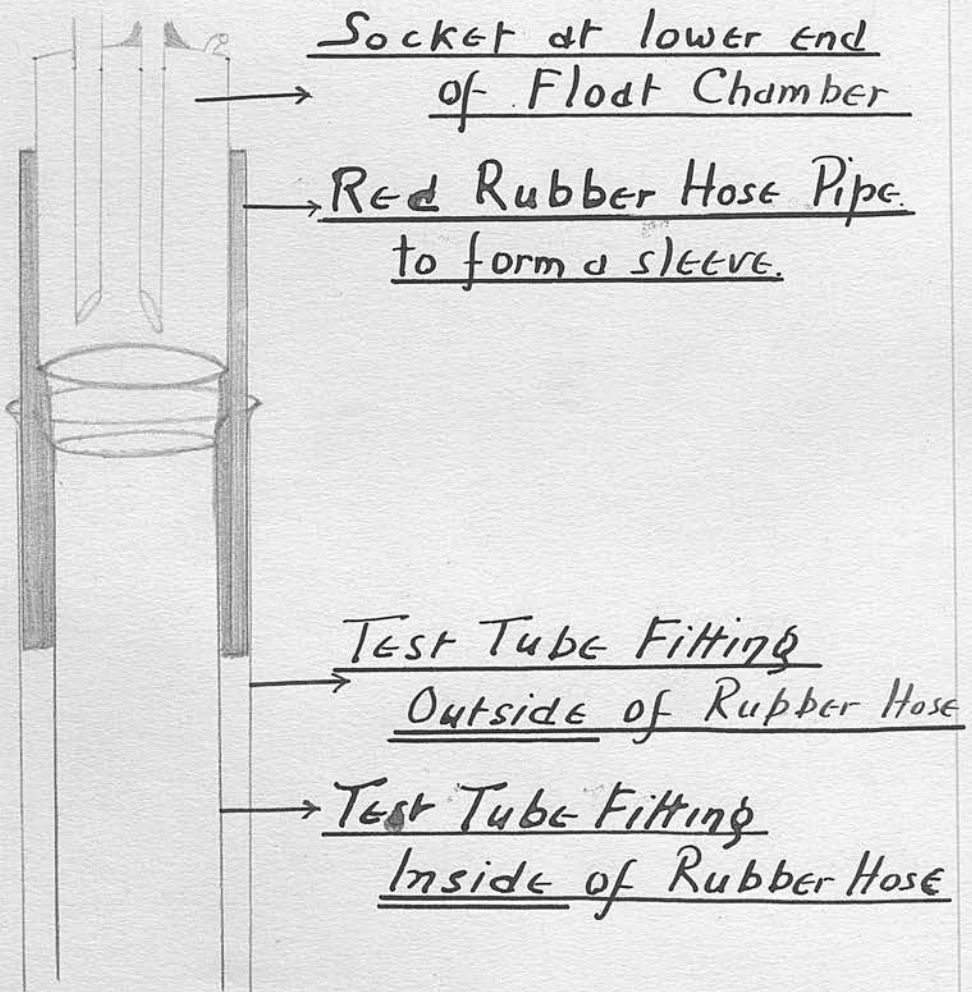 Socket at lower end
of Float Chamber
Red Rubber Hose Pipe.
to form a sleeve.
Test Tube Fitting
Outside of Rubber Hose
Test Tube Fitting
Inside of Rubber Hose